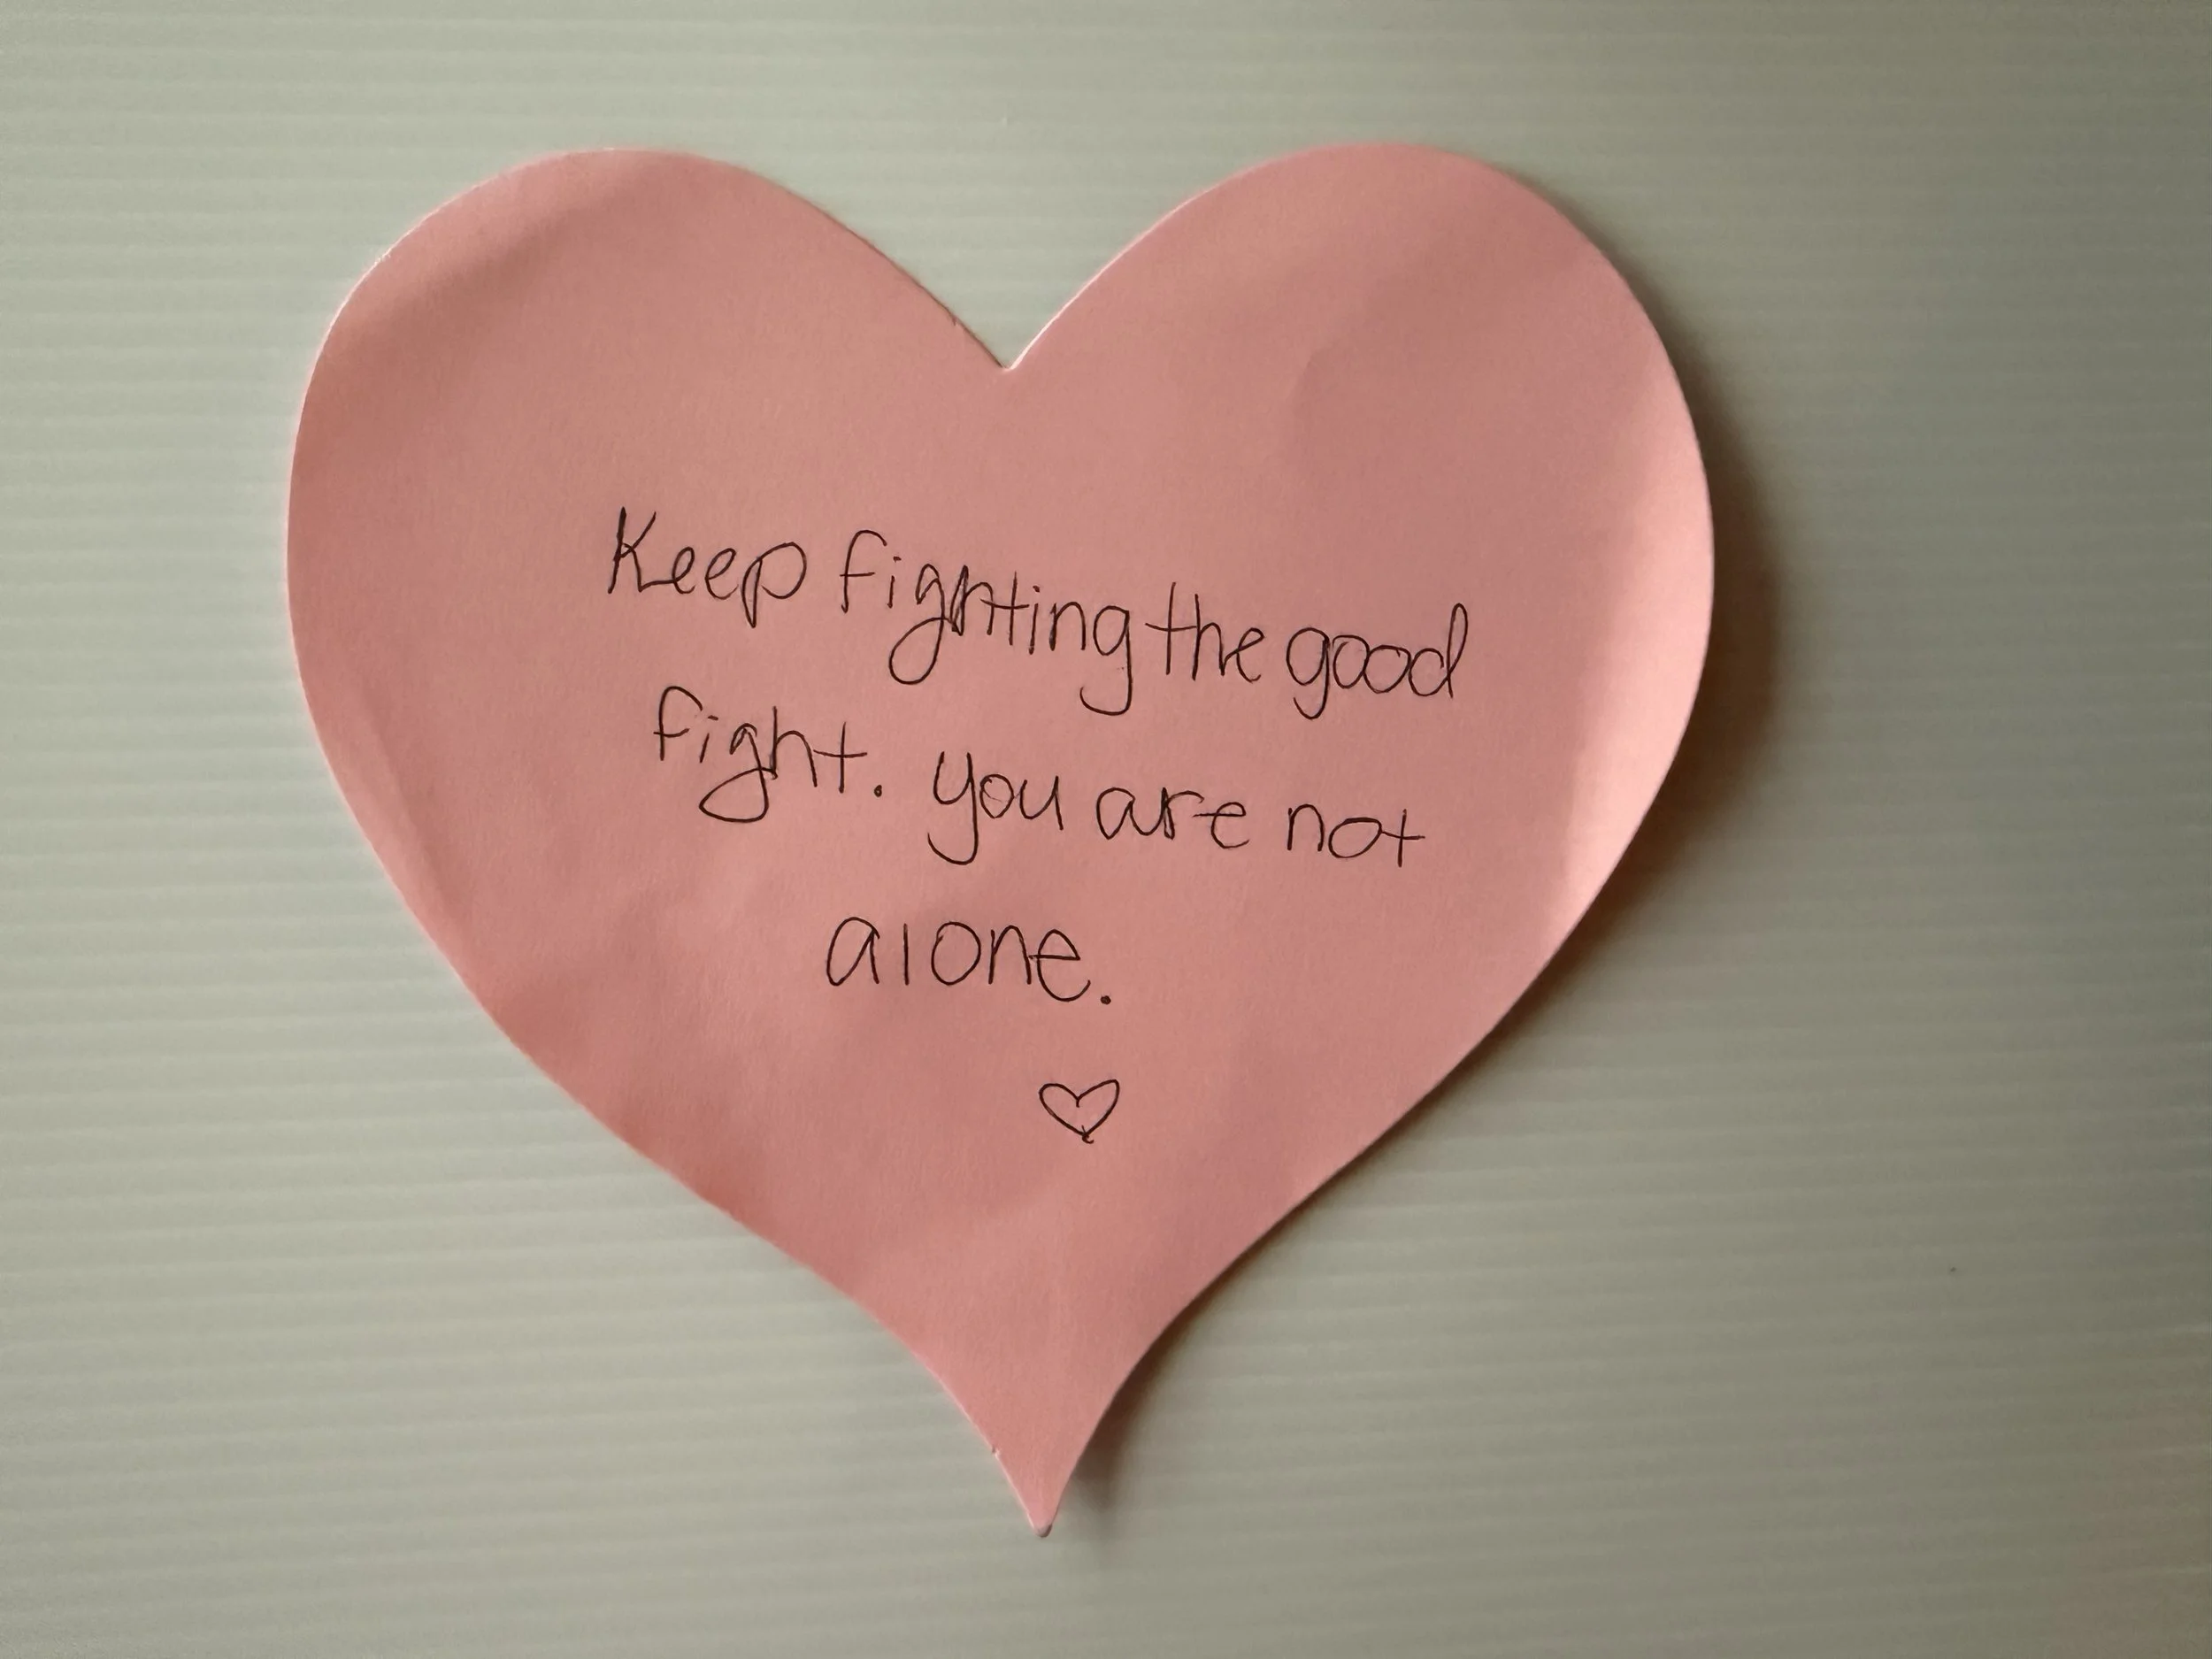 Keep fighting the good
fight. you are not
alone.